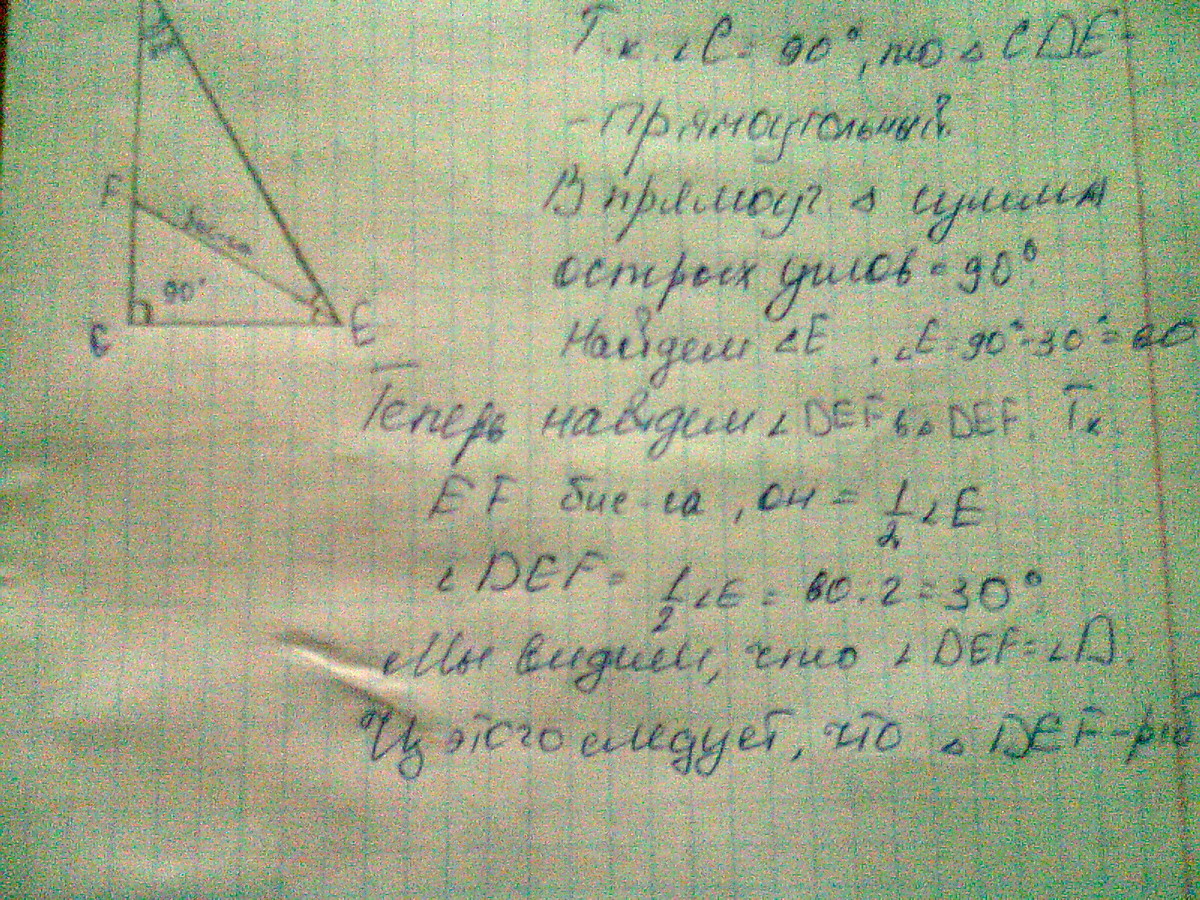 Т.к. ∠C = 90°, то △ CDE -
- прямоугольный.
В прямоуг △ сумма
острых углов = 90°.
F
90°
C
E
Найдем ∠E . ∠E = 90° - 30° = 60
Теперь найдем ∠DEF в △ DEF. Тк.
EF бис-са, он = 1/2 ∠E
∠DEF = 1/2 ∠E = 60 : 2 = 30°.
Мы видим, что ∠DEF = ∠D.
Из этого следует, что △ DEF - р/б